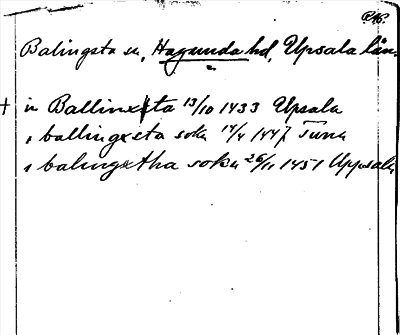 Balingsta sn, Hagunda hd, Upsala län.
in Ballinxsta 13/10 1433 Upsala
" ballingxeta sokn 14/4 1447 Tuna
" balingxtha sokn 26/11 1451 Uppsala